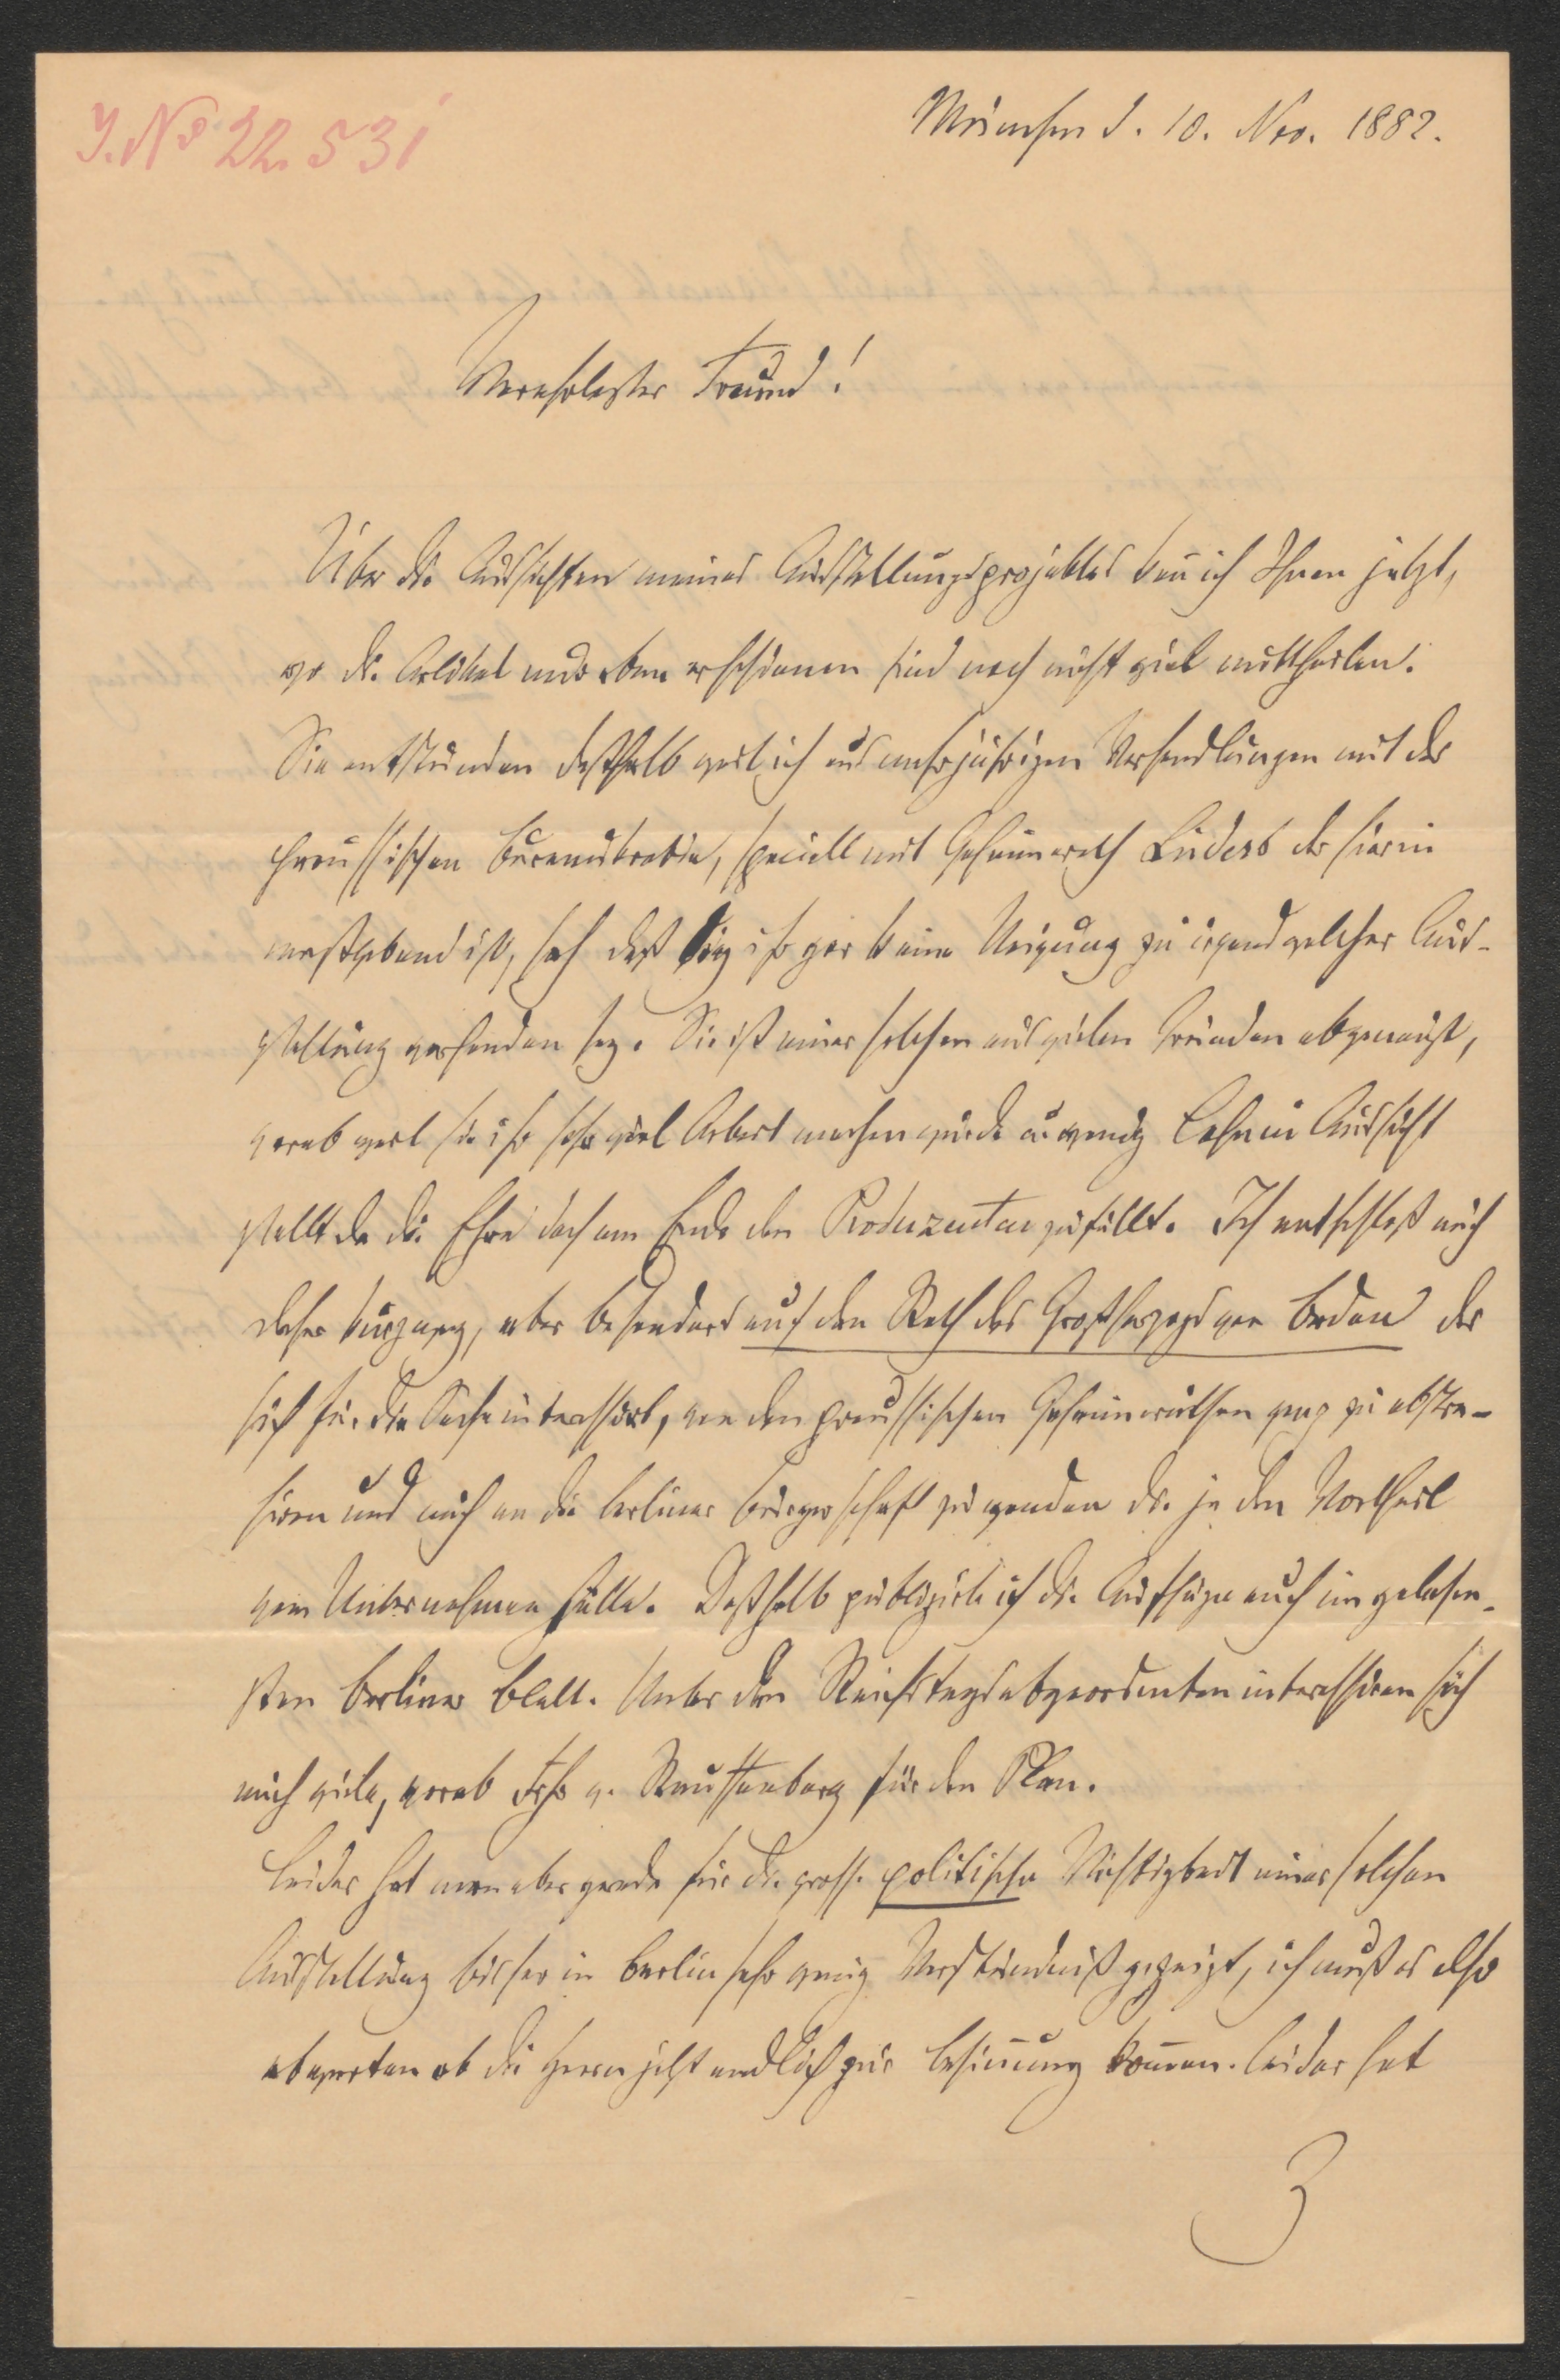 J. No 22.531
München d. 10. Nov. 1882.
Verehrtester Freund!
Über die Aussichten meines Ausstellungsprojektes kañ ich Ihnen jetzt,
wo die Artikel nur eben erschienen sind noch nicht viel mittheilen.
Sie entstunden deßhalb weil ich aus mehrjährigen Verhandlungen mit der
preussischen Bureaukratie, speciell mit Geheimerath Lüders der hierin
maßgebend ist, sah daß bei ihr gar keine Neigung zu irgend welcher Aus-
stellung vorhanden sey. Sie ist einer solchen aus vielen Gründen abgeneigt,
vorab weil sie ihr sehr viel Arbeit machen würde u wenig Lohn in Aussicht
stellt da die Ehre doch am Ende den Produzenten zufällt. Ich entschloß mich
daher kurzweg, aber besonders auf den Rath des Großherzogs von Baden der
sich für die Sache interessirt, von den preussischen Geheimräthen ganz zu abstra-
hiren und mich an die berliner Bürgerschaft zu wenden die ja den Vortheil
vom Unternehmen hätte. Deßhalb publizirte ich die Aufsäze auch im gelesen-
sten berliner Blatt. Unter den Reichstagsabgeordneten interessiren sich
auch viele, vorab Frhr v. Stauffenberg für den Plan.
Leider hat man aber gerade für die grosse politische Wichtigkeit einer solchen
Ausstellung bisher in Berlin sehr wenig Verständniß gezeigt, ich muß es also
abwarten ob die Herrn jetzt endlich zur Besiñung kom̃en. Leider hat